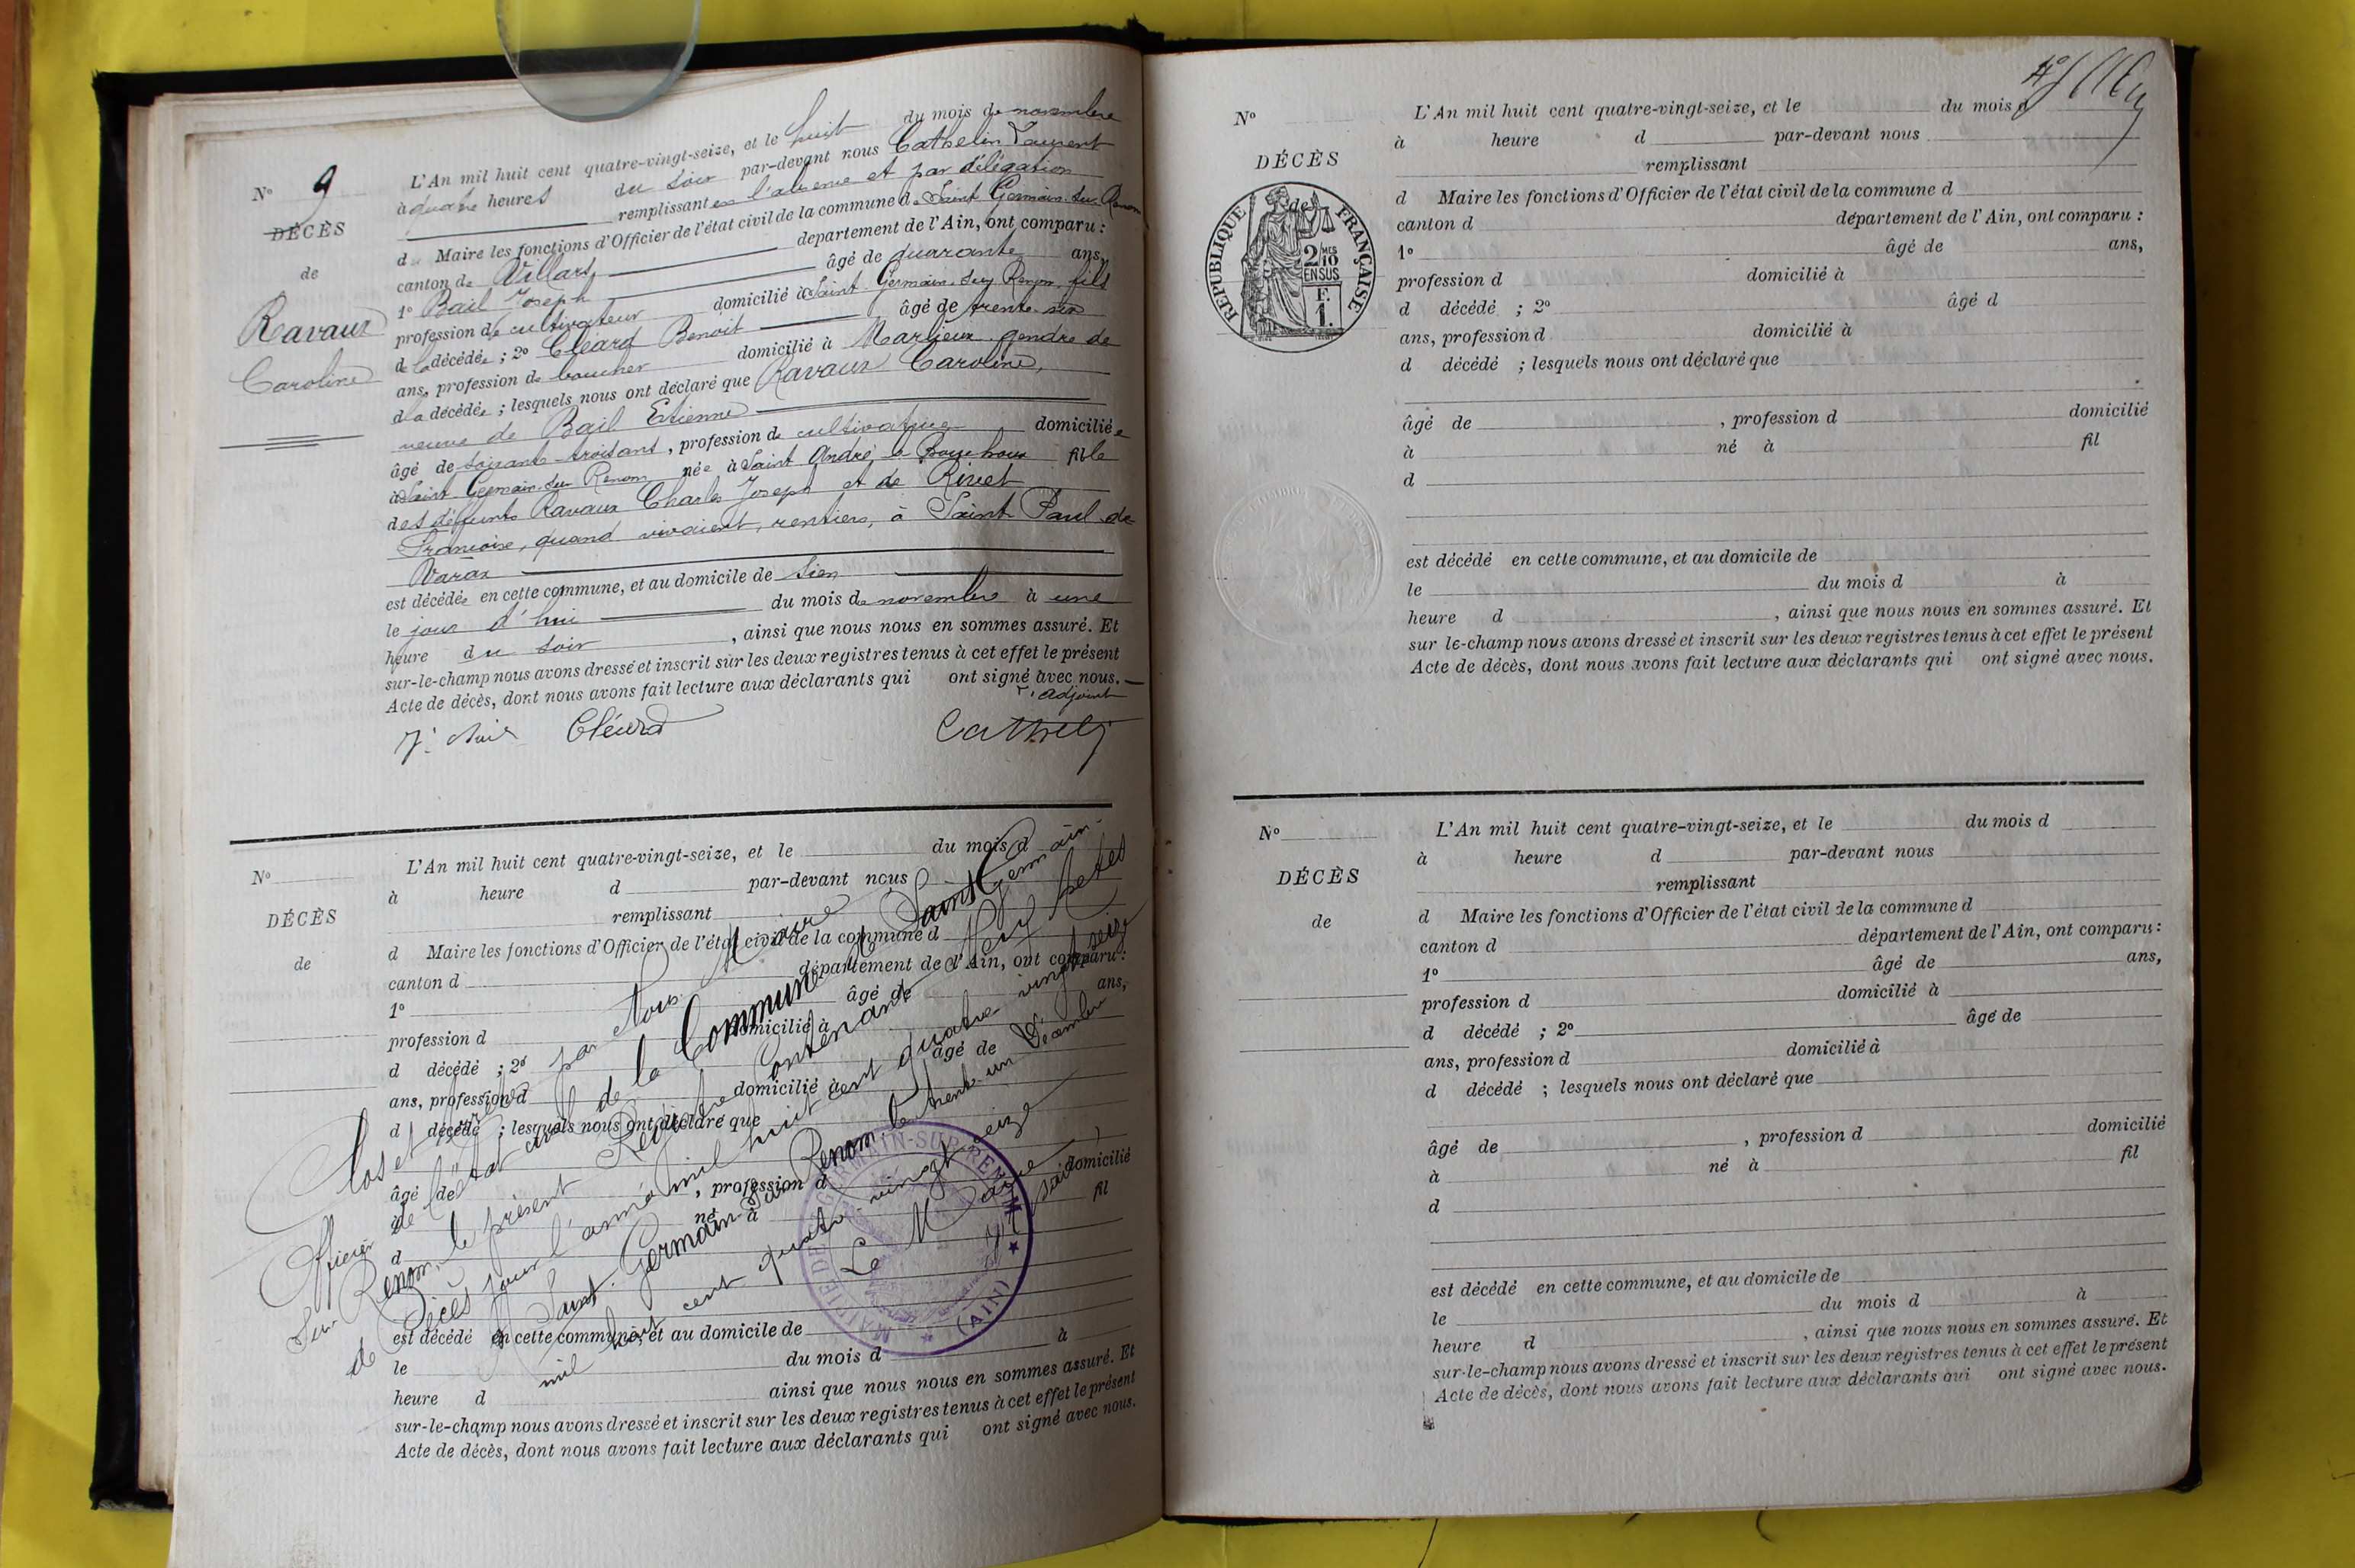 N° 9
DÉCÈS
de
Ravaux
Caroline
L'An mil huit cent quatre-vingt-seize, et le huit du mois de novembre
à quatre heures du soir par-devant nous Cathelin Laurent
remplissant en l'absence et par délégation
d Maire les fonctions d'Officier de l'état civil de la commune de Saint Germain sur Renom
canton de Villars département de l'Ain, ont comparu :
1° Bail Joseph âgé de quarante ans,
profession de cultivateur domicilié à Saint Germain sur Renom fils
de la décédée ; 2° Cléard Benoit âgé de trente six
ans, profession de boucher domicilié à Marlieux gendre de
d la décédée ; lesquels nous ont déclaré que Ravaux Caroline,
veuve de Bail Etienne
âgé de soixante-trois ans, profession de cultivatrice domiciliée
à Saint Germain sur Renom née à Saint André le Bouchoux fille
des défunts Ravaux Charles Joseph et de Rivet
Francoise, quand vivaient, rentiers, à Saint Paul de
Varax
est décédée en cette commune, et au domicile de sien
le jour d'hui du mois de novembre à une
heure du soir, ainsi que nous nous en sommes assuré. Et
sur-le-champ nous avons dressé et inscrit sur les deux registres tenus à cet effet le présent
Acte de décès, dont nous avons fait lecture aux déclarants qui ont signé avec nous.
L'adjoint
Cléard Cathelin
N°
DÉCÈS
de
L'An mil huit cent quatre-vingt-seize, et le du mois d
à heure d par-devant nous
remplissant
d Maire les fonctions d'Officier de l'état civil de la commune d
canton d département de l'Ain, ont comparu :
1° âgé de ans,
profession d domicilié à
d décédé ; 2° âgé de
ans, profession d domicilié à
d décédé ; lesquels nous ont déclaré que
âgé de , profession d domicilié
à né à fil
d
est décédé en cette commune, et au domicile de
le du mois d à
heure d ainsi que nous nous en sommes assuré. Et
sur-le-champ nous avons dressé et inscrit sur les deux registres tenus à cet effet le présent
Acte de décès, dont nous avons fait lecture aux déclarants qui ont signé avec nous.
Clos et arrêté par Nous Maire
Officier de l'état civil de la Commune de Saint Germain
sur Renom, le présent Registre contenant Neuf Actes
de Décès pour l'année mil huit cent quatre vingt seize
A Saint-Germain-sur Renom le trente-un Décembre
mil huit cent quatre-vingt seize
Le Maire
MAIRIE DE ST GERMAIN-SUR-RENOM
(AIN)
N°
DÉCÈS
de
RÉPUBLIQUE FRANÇAISE
2 MES
10
EN SUS
F.
1.
L'An mil huit cent quatre-vingt-seize, et le du mois d
à heure d par-devant nous
remplissant
d Maire les fonctions d'Officier de l'état civil de la commune d
canton d département de l'Ain, ont comparu :
1° âgé de ans,
profession d domicilié à
d décédé ; 2° âgé d
ans, profession d domicilié à
d décédé ; lesquels nous ont déclaré que
âgé de , profession d domicilié
à né à fil
d
est décédé en cette commune, et au domicile de
le du mois d à
heure d , ainsi que nous nous en sommes assuré. Et
sur le-champ nous avons dressé et inscrit sur les deux registres tenus à cet effet le présent
Acte de décès, dont nous avons fait lecture aux déclarants qui ont signé avec nous.
N°
DÉCÈS
de
L'An mil huit cent quatre-vingt-seize, et le du mois d
à heure d par-devant nous
remplissant
d Maire les fonctions d'Officier de l'état civil de la commune d
canton d département de l'Ain, ont comparu :
1° âgé de ans,
profession d domicilié à
d décédé ; 2° âgé de
ans, profession d domicilié à
d décédé ; lesquels nous ont déclaré que
âgé de , profession d domicilié
à né à fil
d
est décédé en cette commune, et au domicile de
le du mois d à
heure d , ainsi que nous nous en sommes assuré. Et
sur-le-champ nous avons dressé et inscrit sur les deux registres tenus à cet effet le présent
Acte de décès, dont nous avons fait lecture aux déclarants qui ont signé avec nous.